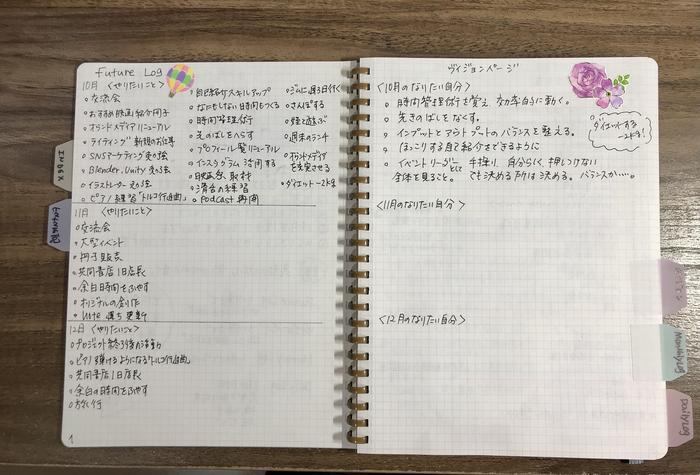 Future Log
10月 〈やりたいこと〉
交流会
おすすめ映画紹介冊子
オウンドメディアリニューアル
ライティング 新規のお仕事
SNSマーケティング 案の3話
Blender、Unity 案の3話
イラストレーター 案の3話
ピアノ練習「トルコ行進曲」
自己紹介スキルアップ
なにもしない日時間もつくる
時間管理術
先のばしをへらす
プロフィール賢リニューアル
インスタグラム 活用する
映画祭 取材
滑舌の練習
Podcast 再開
ジムに週3日行く
さんぽする
姪と遊ぶ
週末のランチ
オウンドメディアを充実させる
ダイエット-2kg
11月 〈やりたいこと〉
交流会
大型イベント
冊子販売
共同書店1日店長
余白時間をふやす
オリジナルの創作
note 落ち 更新
12月 〈やりたいこと〉
プロジェクト終了後の活動
ピアノ 弾けるようになる「トルコ行進曲」
共同書店1日店長
余白の時間をふやす
旅行
1
INDEX
ヴィジョンページ
〈10月のなりたい自分〉
時間管理術を覚え 効率的に動く。
先のばしをなくす。
インプットとアウトプットのバランスを整える。
ほっこりする自己紹介をできるように
イベントリーダーとして 手探り、自分らしく、押しつけない
全体を見ること。 でも決める所は決める。バランスが……。
ダイエットする
-2kg!
〈11月のなりたい自分〉
〈12月のなりたい自分〉
Monthly Log
Daily Log